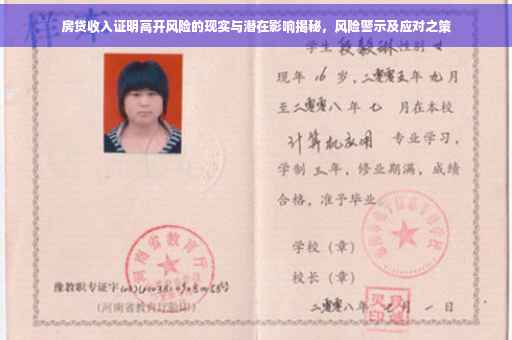 房贷收入证明高开风险的现实与潜在影响揭秘，风险警示及应对之策
样本
学生段毅琳性别女
现年16岁，二零零五年九月
至二零零八年七月在本校
计算机应用 专业学习，
学制三年，修业期满，成绩
合格，准予毕业。
学校（章）
校长（章）
二零零八年 月一日
河南省教育厅
豫教职专证字
(河南省教育厅验印)